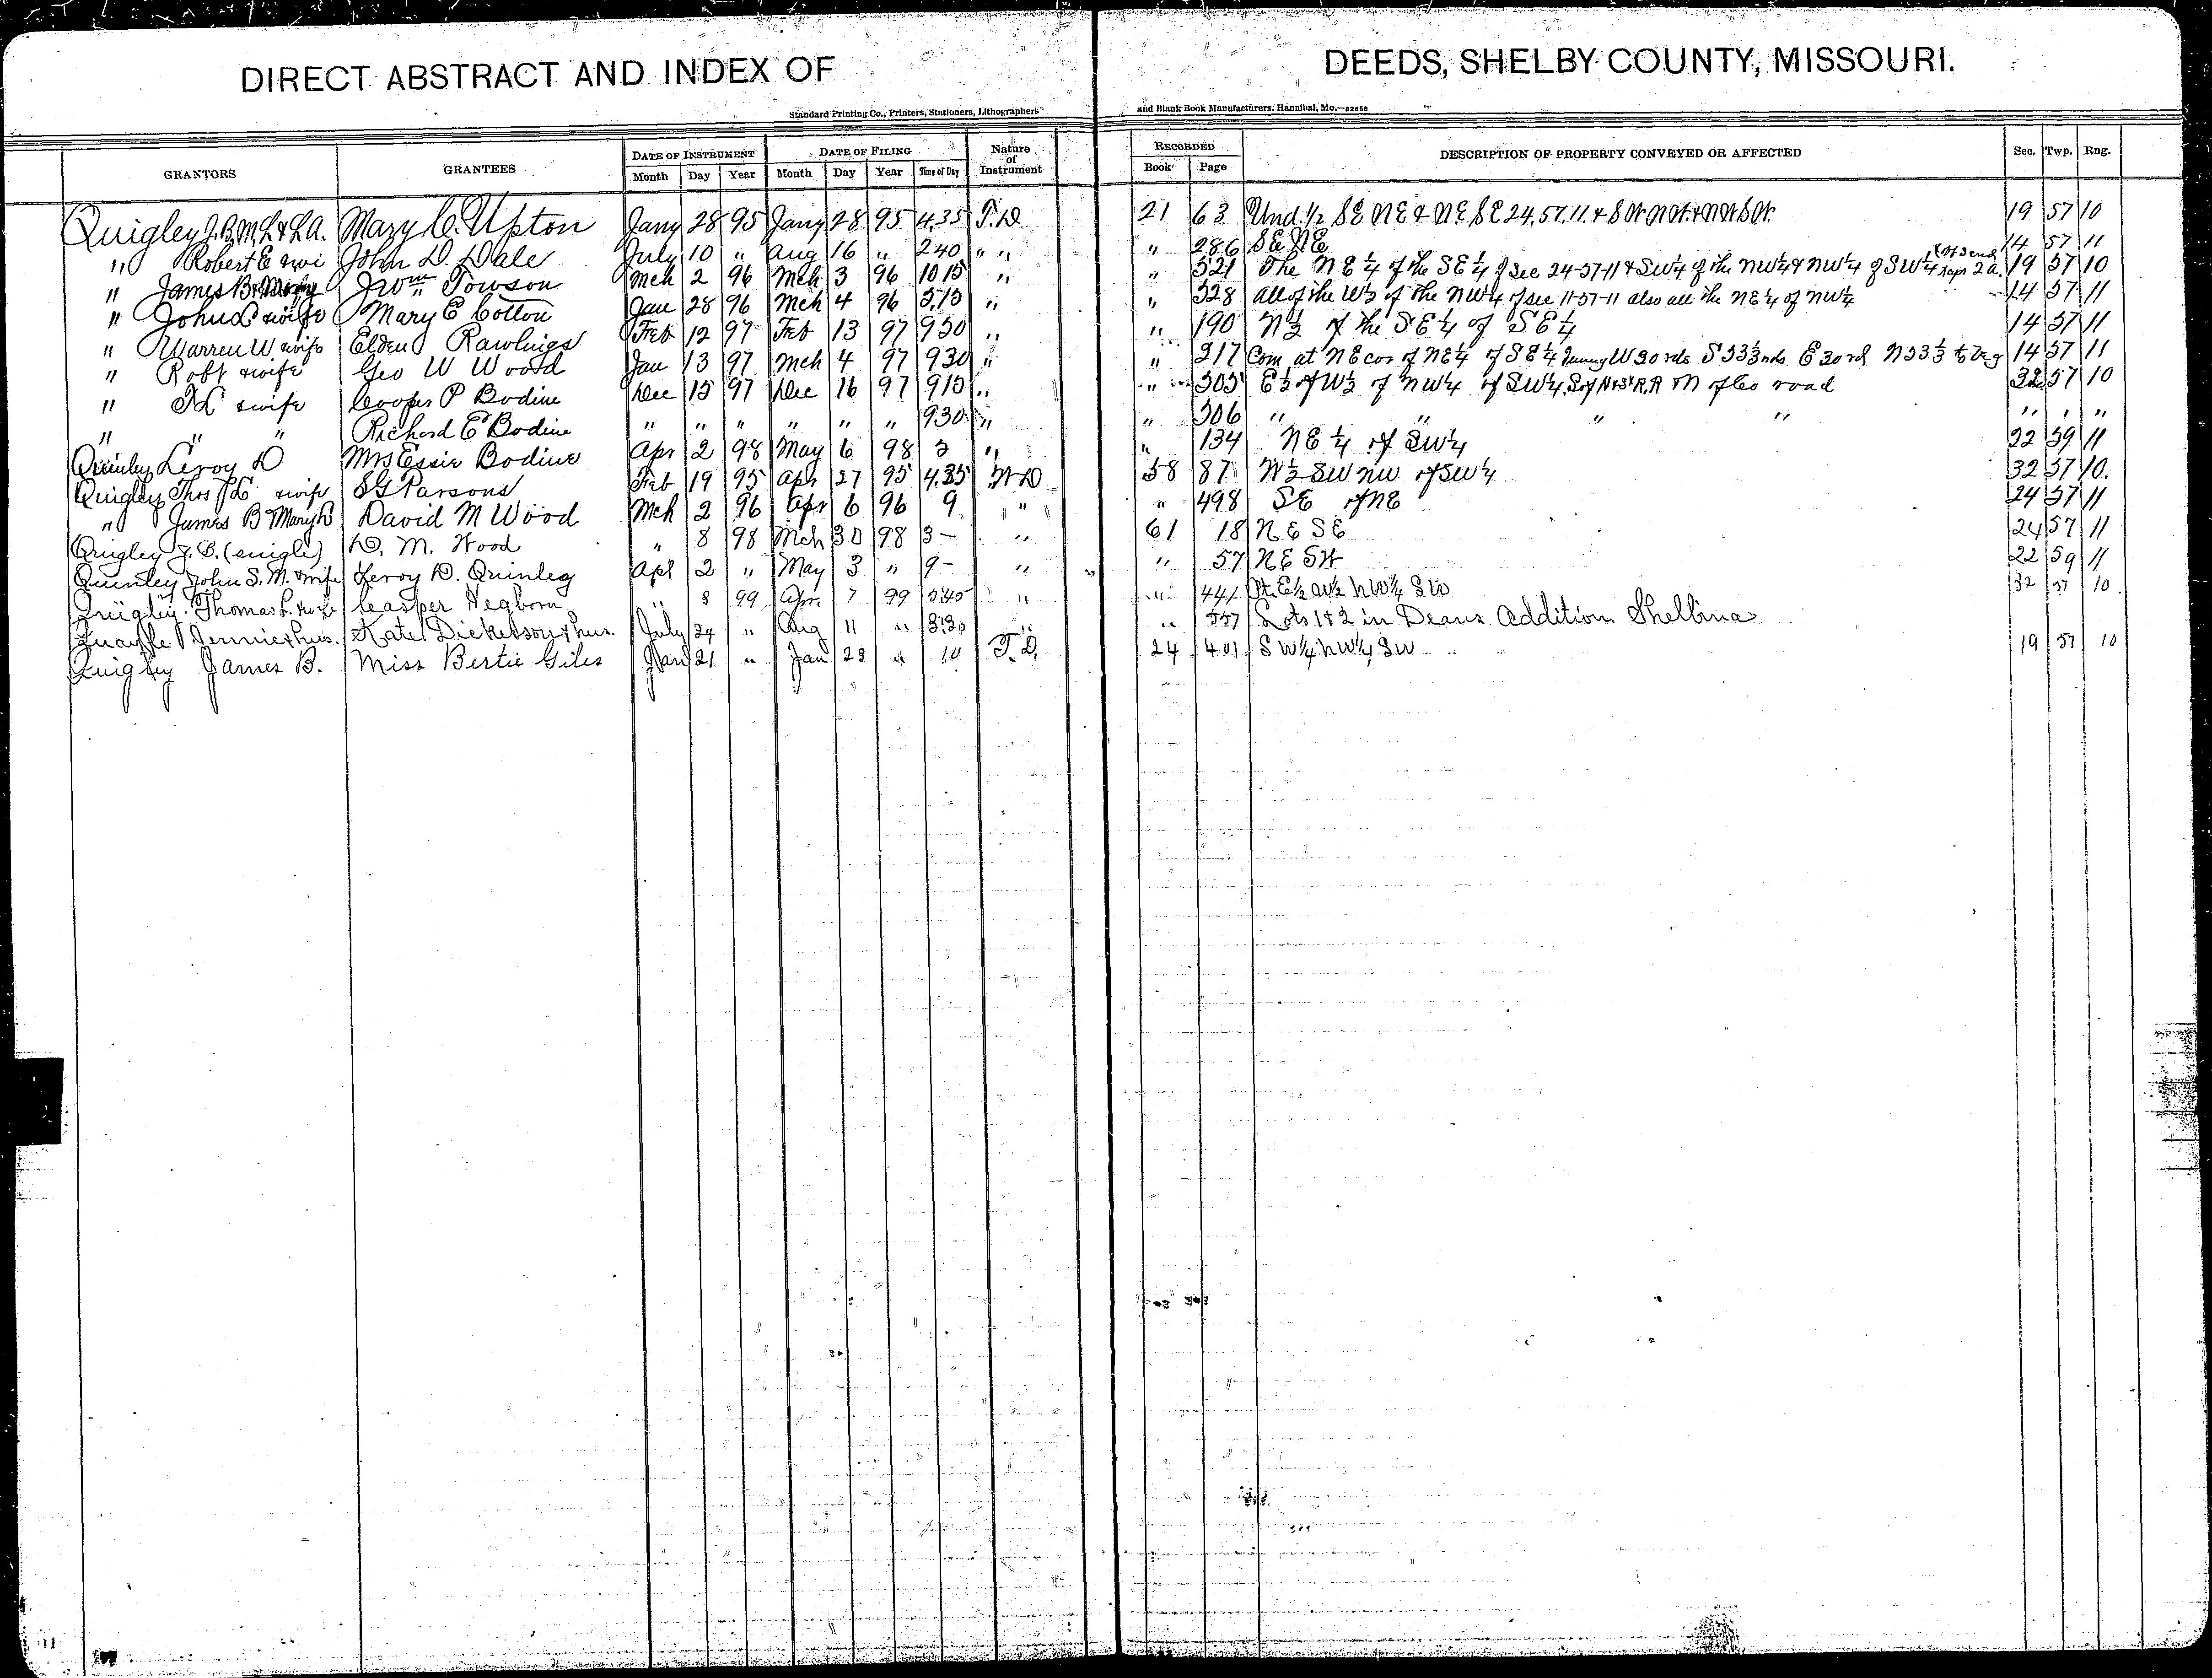 DIRECT ABSTRACT AND INDEX OF DEEDS, SHELBY COUNTY, MISSOURI.
Standard Printing Co., Printers, Stationers, Lithographers and Blank Book Manufacturers, Hannibal, Mo.—
GRANTORS GRANTEES DATE OF INSTRUMENT DATE OF FILING Nature of Instrument RECORDED DESCRIPTION OF PROPERTY CONVEYED OR AFFECTED Sec. Twp. Rng.
Month Day Year Month Day Year Time of Day Book Page
Quigley J.B, M.L & L.A. Mary C. Upton Jany 28 95 Jany 28 95 4.35 T.D 21 63 Und. 1/2 SE NE & NE SE 24.57.11 & SW. NW. & NW SW. 19 57 10
" Robert E & wi John D. Dale July 10 " Aug 16 " 240 " " 286 SE NE 14 57 11
" James B & Jno Wm Towson Mch 2 96 Mch 3 96 10 15 " " 321 The NE 1/4 of the SE 1/4 of Sec 24-57-11 & SW 1/4 of the NW 1/4 & NW 1/4 of SW 1/4 2 a. 19 57 10
" John L & wife Mary E Cotton Jan 28 96 Mch 4 96 3.15 " " 328 all of the W 1/2 of the NW 1/4 of sec 11-57-11 also all the NE 1/4 of NW 1/4 14 57 11
" Warren W & wife Elden Rawlings Feb 12 97 Feb 13 97 930 " " 190 N 1/2 of the SE 1/4 of SE 1/4 14 57 11
" Robt & wife Geo W Wood Jan 13 97 Mch 4 97 930 " " 217 Com at NE cor of NE 1/4 of SE 1/4 W 30 rds S 53 1/3 rds E 30 rd N 53 1/3 to beg 14 57 11
" T L & wife Cooper P Bodine Dec 15 97 Dec 16 97 915 " " 305 E 1/2 of W 1/2 of NW 1/4 of SW 1/4, S of H & St R.R N of Co road 32 57 10
" " " Richard E Bodine " " " " " " 930 " " 306 " " " " " " "
Quinley Leroy D Mrs Essie Bodine Apr 2 98 May 6 98 3 " " 134 NE 1/4 of SW 1/4 22 59 11
Quigley Thos L & wife S G Parsons Feb 19 95 Apr 27 95 4.35 W D 58 87 W 1/2 SW NW of SW 1/4 32 57 10.
" James B Mary L David M Wood Mch 2 96 Apr 6 96 9 " " 498 SE of NE 24 57 11
Quigley J. B. (single) D. M. Wood " 8 98 Mch 30 98 3- " 61 18 NE SE 24 57 11
Quinley John S. M. & wife Leroy D. Quinley Apl 2 " May 3 " 9- " " 57 NE SW 22 59 11
Quigley Thomas L. & wife Casper Hegborn " 8 99 Apr 7 99 " " 441 Pt. E 1/2 W 1/2 NW 1/4 SW 32 57 10
Quayle Jennie & hus. Kate Dickerson & hus. July 24 " Aug 11 " 8:30 " " 557 Lots 1 & 2 in Deans Addition Shelbina
Quigley James B. Miss Bertie Giles Jan 21 " Jan 23 " 10 T.D. 24 401 SW 1/4 NW 1/4 SW 19 57 10